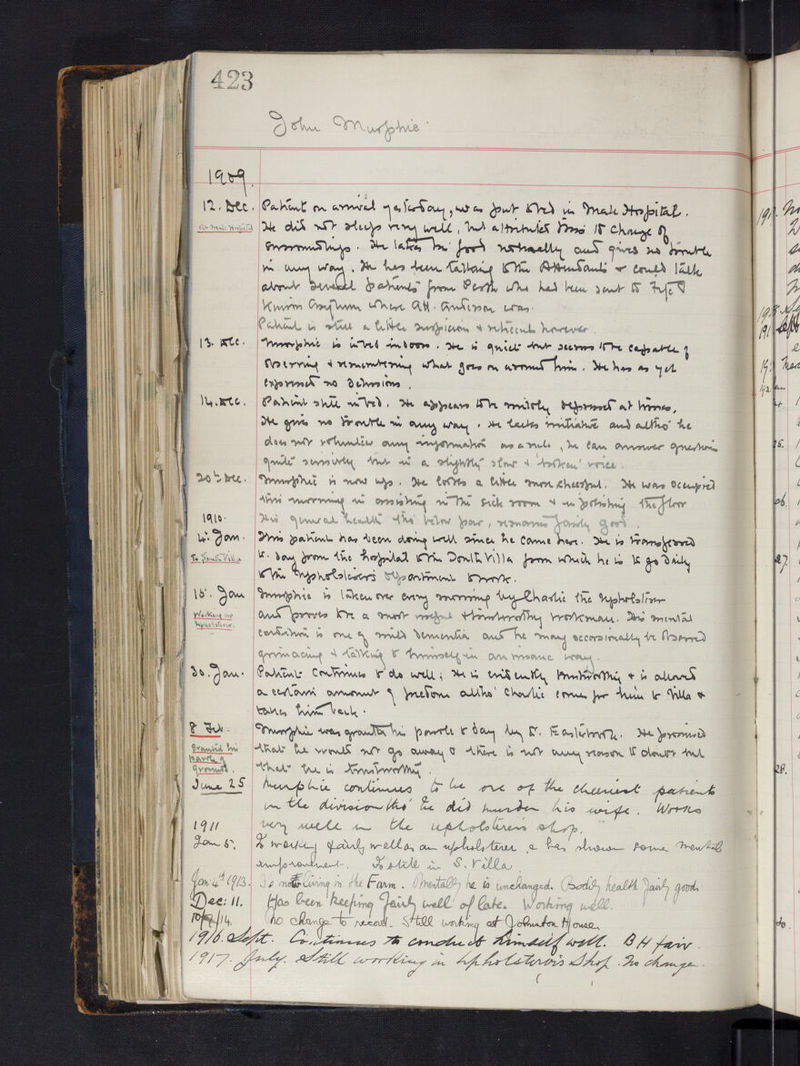 423
John Murphie
1909.
12. Dec. Patient on arrival yesterday, was put to bed in Male Hospital.
He did not sleep very well, but attributes this to change of
surroundings. He takes his food naturally and gives no trouble
in any way. He has been talking to the Attendants & could talk
about several patients from Perth who had been sent to Fife &
Kinross Asylum where Att. Anderson was.
Patient is still a little suspicious & reticent however.
13. Dec. Murphie is in bed indoors. He is quiet but seems to be capable of
observing & remembering what goes on around him. He has as yet
expressed no delusions.
14. Dec. Patient still in bed. He appears to be mildly depressed at times.
He gives no trouble in any way. He lacks initiative and altho' he
does not volunteer any information as a rule, he can answer questions
quite sensibly but in a slightly slow & 'broken' voice.
20th Dec. Murphie is now up. He looks a little more cheerful. He was occupied
this morning in assisting in the sick room & in polishing the floor
His general health tho' below par, remains fairly good.
1910.
4. Jan. This patient has been doing well since he came here. He is transferred
To South Villa to-day from the hospital to the South Villa from which he is to go daily
to the Upholsterer's department to work.
15. Jan Murphie is taken over every morning by Charlie the Upholsterer
Working as Upholsterer. and proves to be a most useful & trustworthy workman. His mental
condition is one of mild dementia and he may occasionally be observed
grimacing & talking to himself in an insane way.
30. Jan. Patient continues to do well; he is evidently trustworthy & is allowed
a certain amount of freedom altho' Charlie comes for him to Villa &
takes him back.
8 Feb. Murphie was granted his parole to day by Dr. Easterbrook. He promised
Granted his parole of grounds. that he would not go away & there is not any reason to doubt but
that he is trustworthy.
June 25 Murphie continues to be one of the cheeriest patients
in the division tho' he did murder his wife. Works
very well in the upholsterers shop.
1911
Jan 5. Is working fairly well as an upholsterer & has shown some mental
improvement. Is still in S. Villa.
Jan 4th 1913. Is not living in the Farm. Mentally he is unchanged. Bodily health fairly good.
Dec: 11. Has been keeping fairly well of late. Working well.
/14. No change to record. Still working at Johnston House.
1916 Sept. Continues to conduct himself well. B H fair.
1917. July. Still working in Upholsterer's Shop. No change.